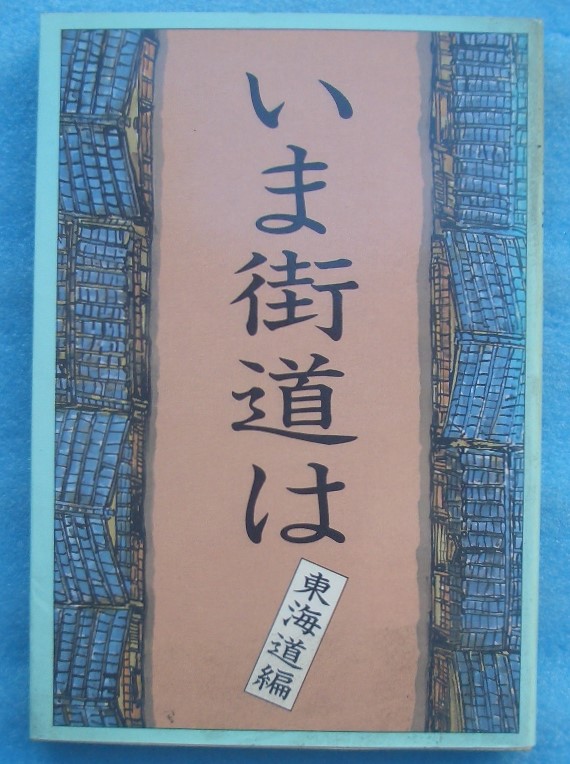 いま街道は
東海道編